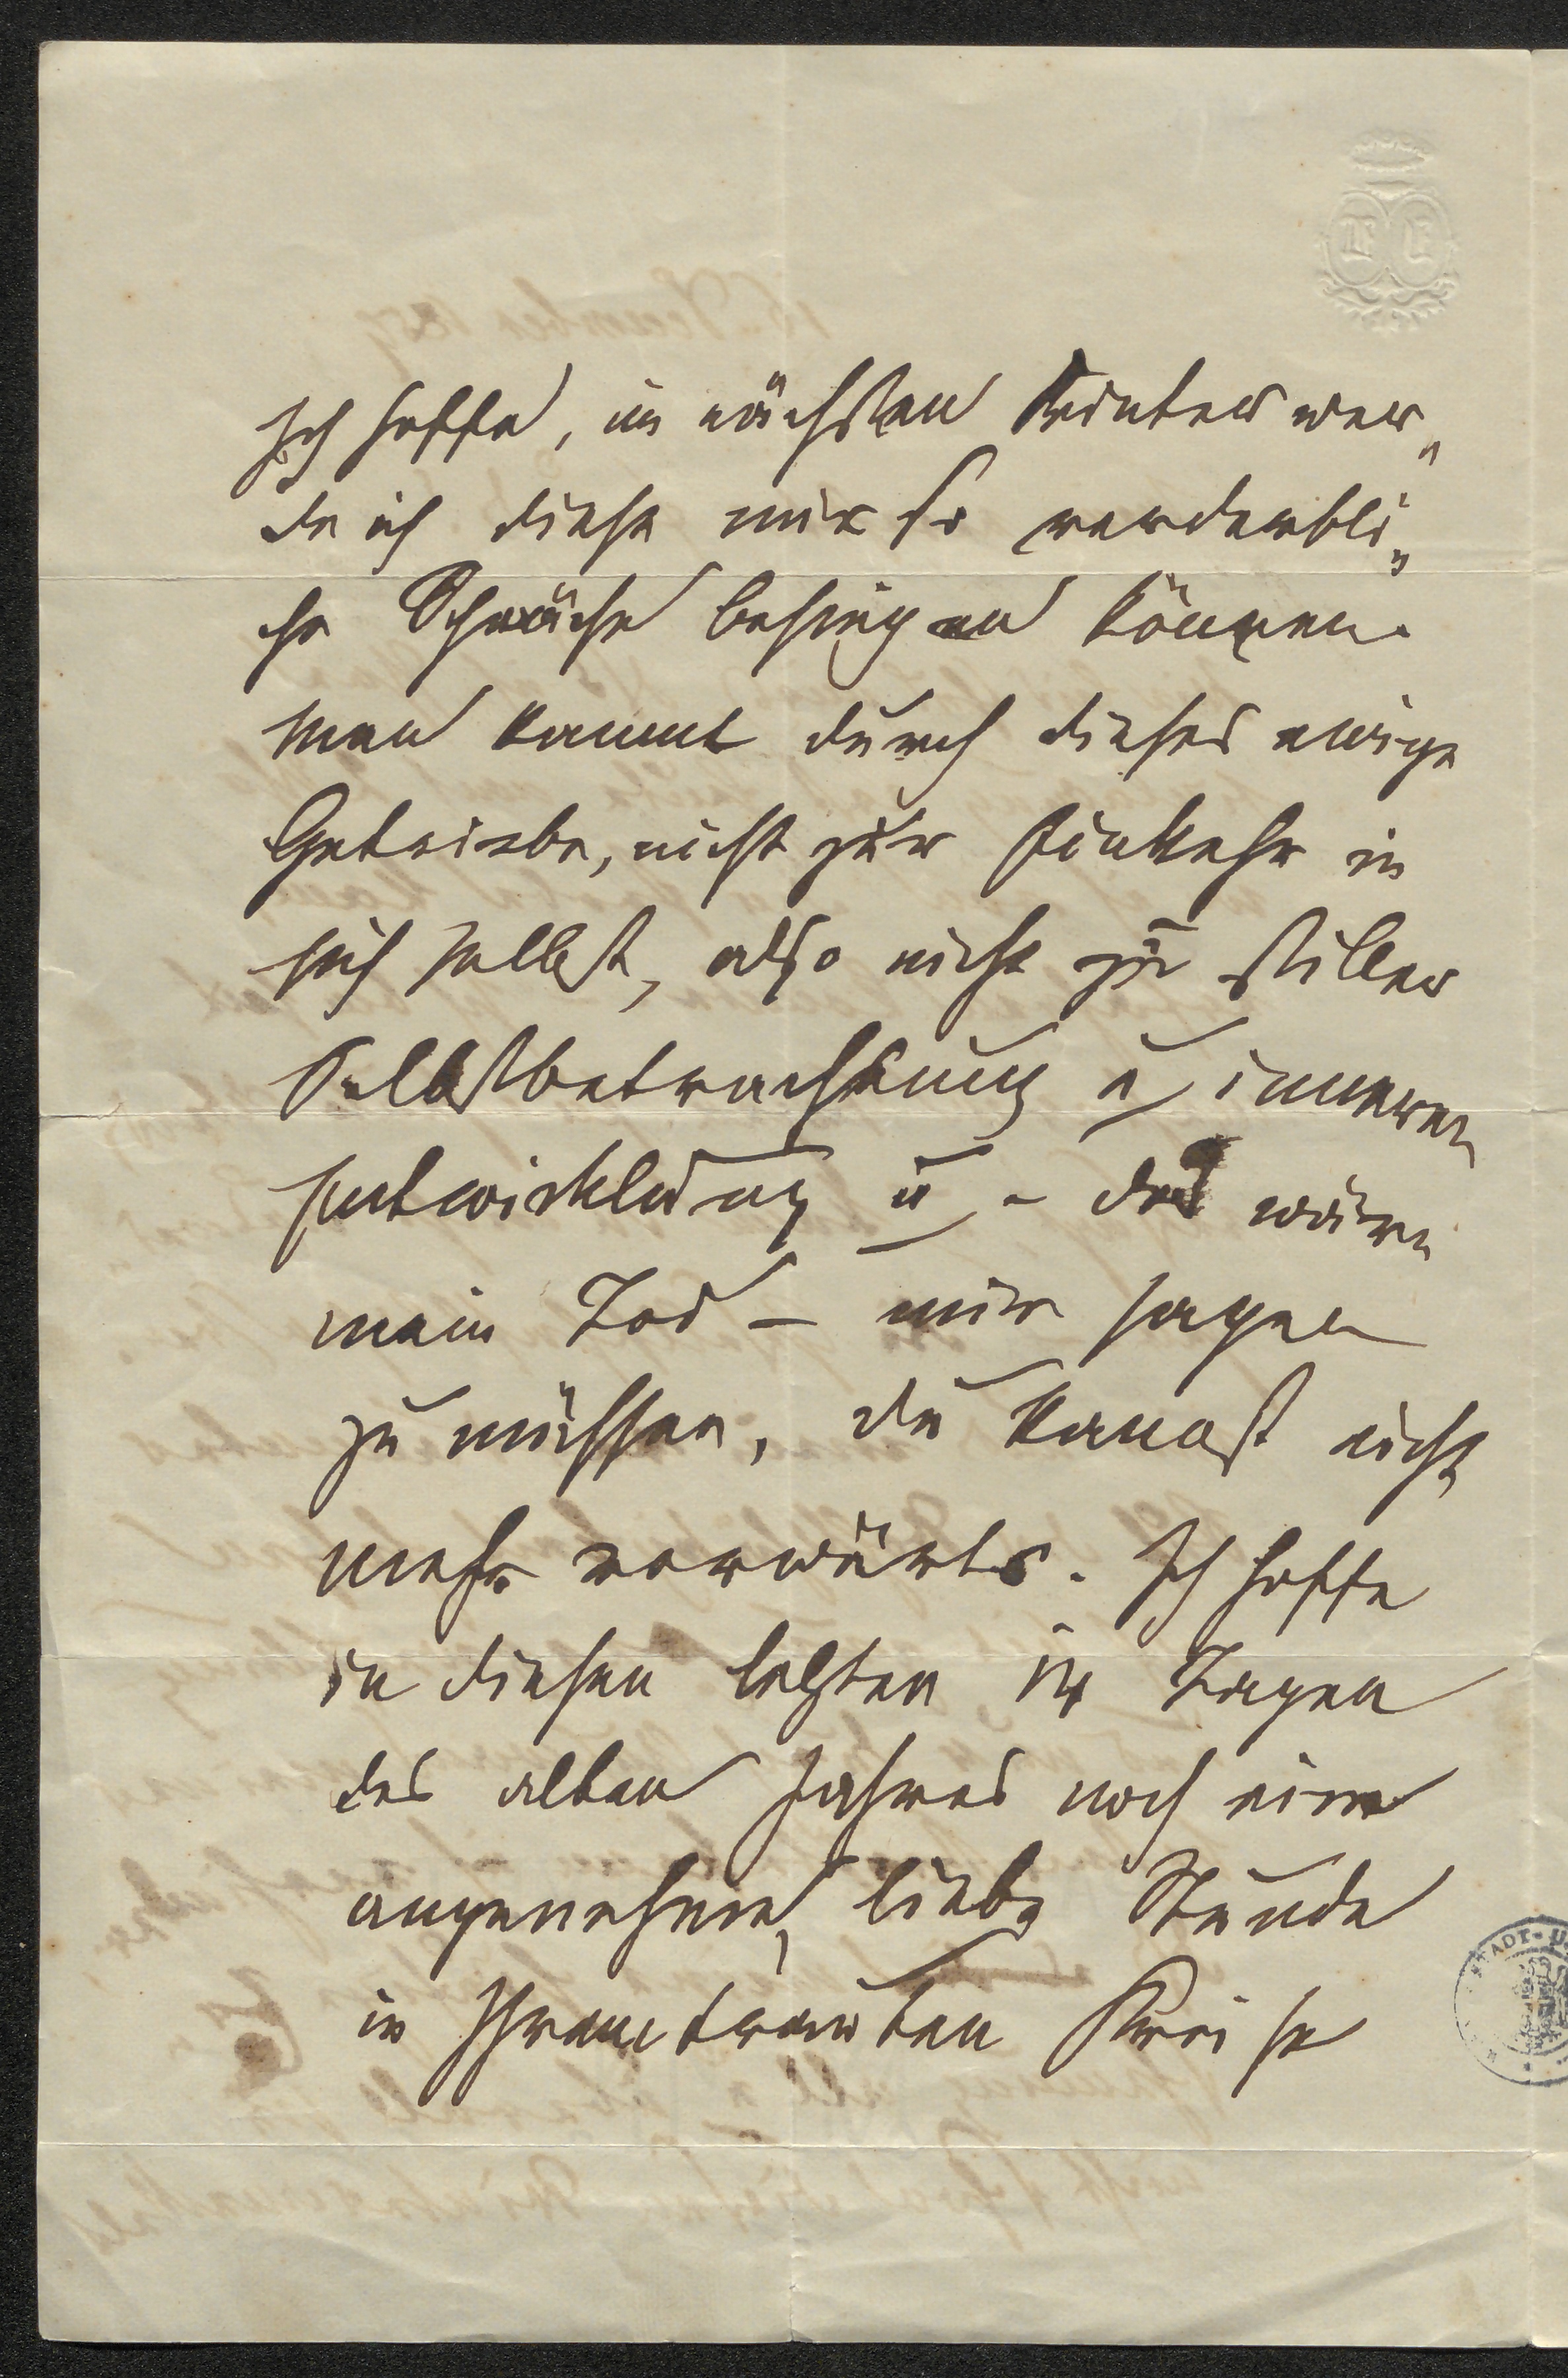 Ich hoffe, im nächsten Winter wer„
de ich diese mir so verderbli„
che Schwäche besiegen können.
Man kommt durch dieses ewige
Getriebe, nicht zur Einkehr in
sich selbst, also nicht zu stiller
Selbstbetrachtung u inneren
Entwicklung u - das wäre
mein Tod – mir sagen
zu müssen, du kannst nicht
mehr vorwärts. Ich hoffe
in diesen letzten 14 Tagen
des alten Jahres noch eine
angenehme, liebe Stunde
in Ihrem trauten Kreise
STADT-